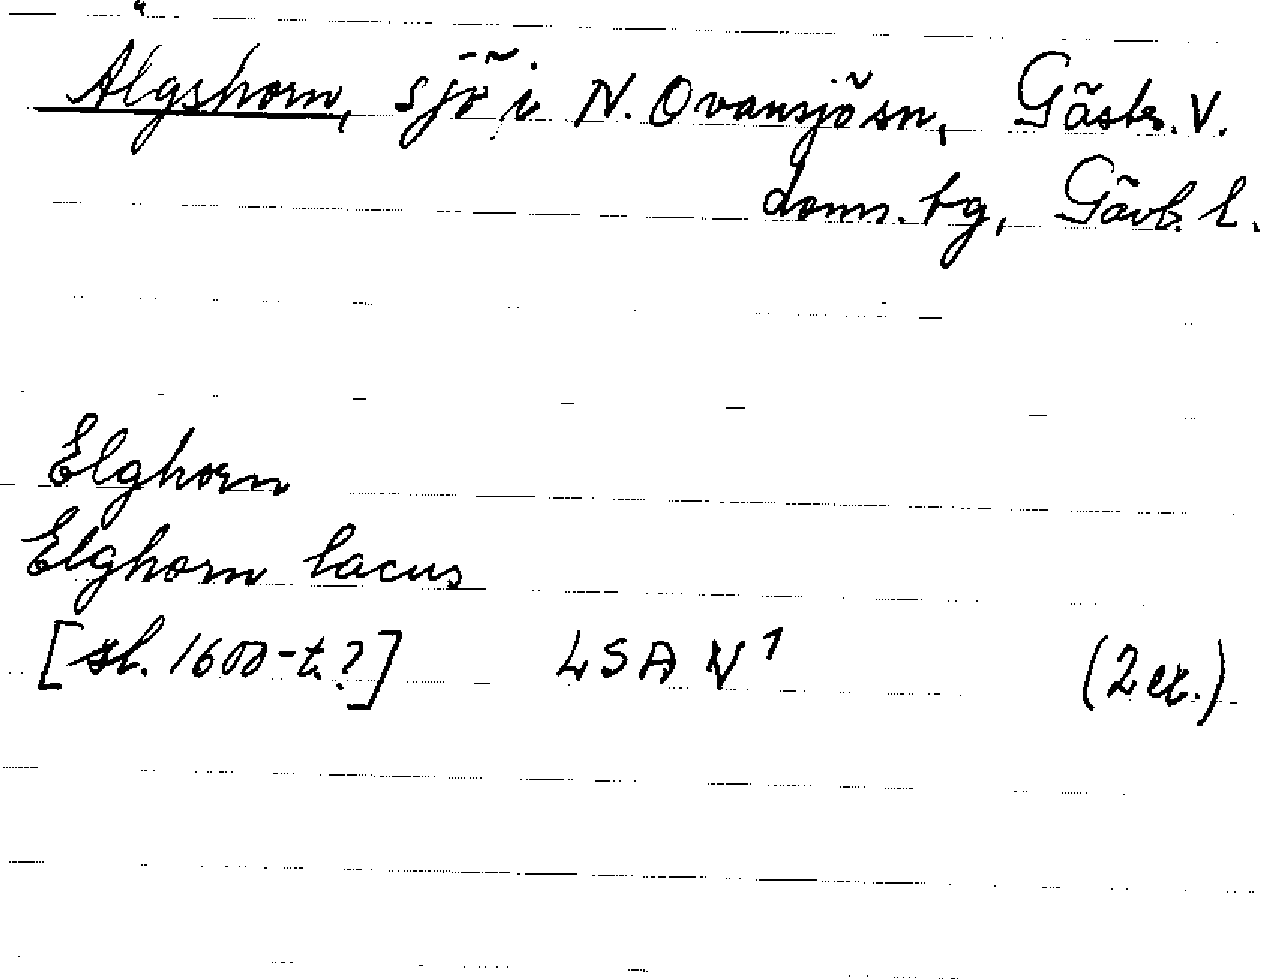 Älgshorn, sjö i N. Ovansjö sn, Gästr. V.
doms. tg, Gävl. l.
Elghorn
Elghorn lacus
[sl. 1600-t.?] LSA N¹ (2 ex.)